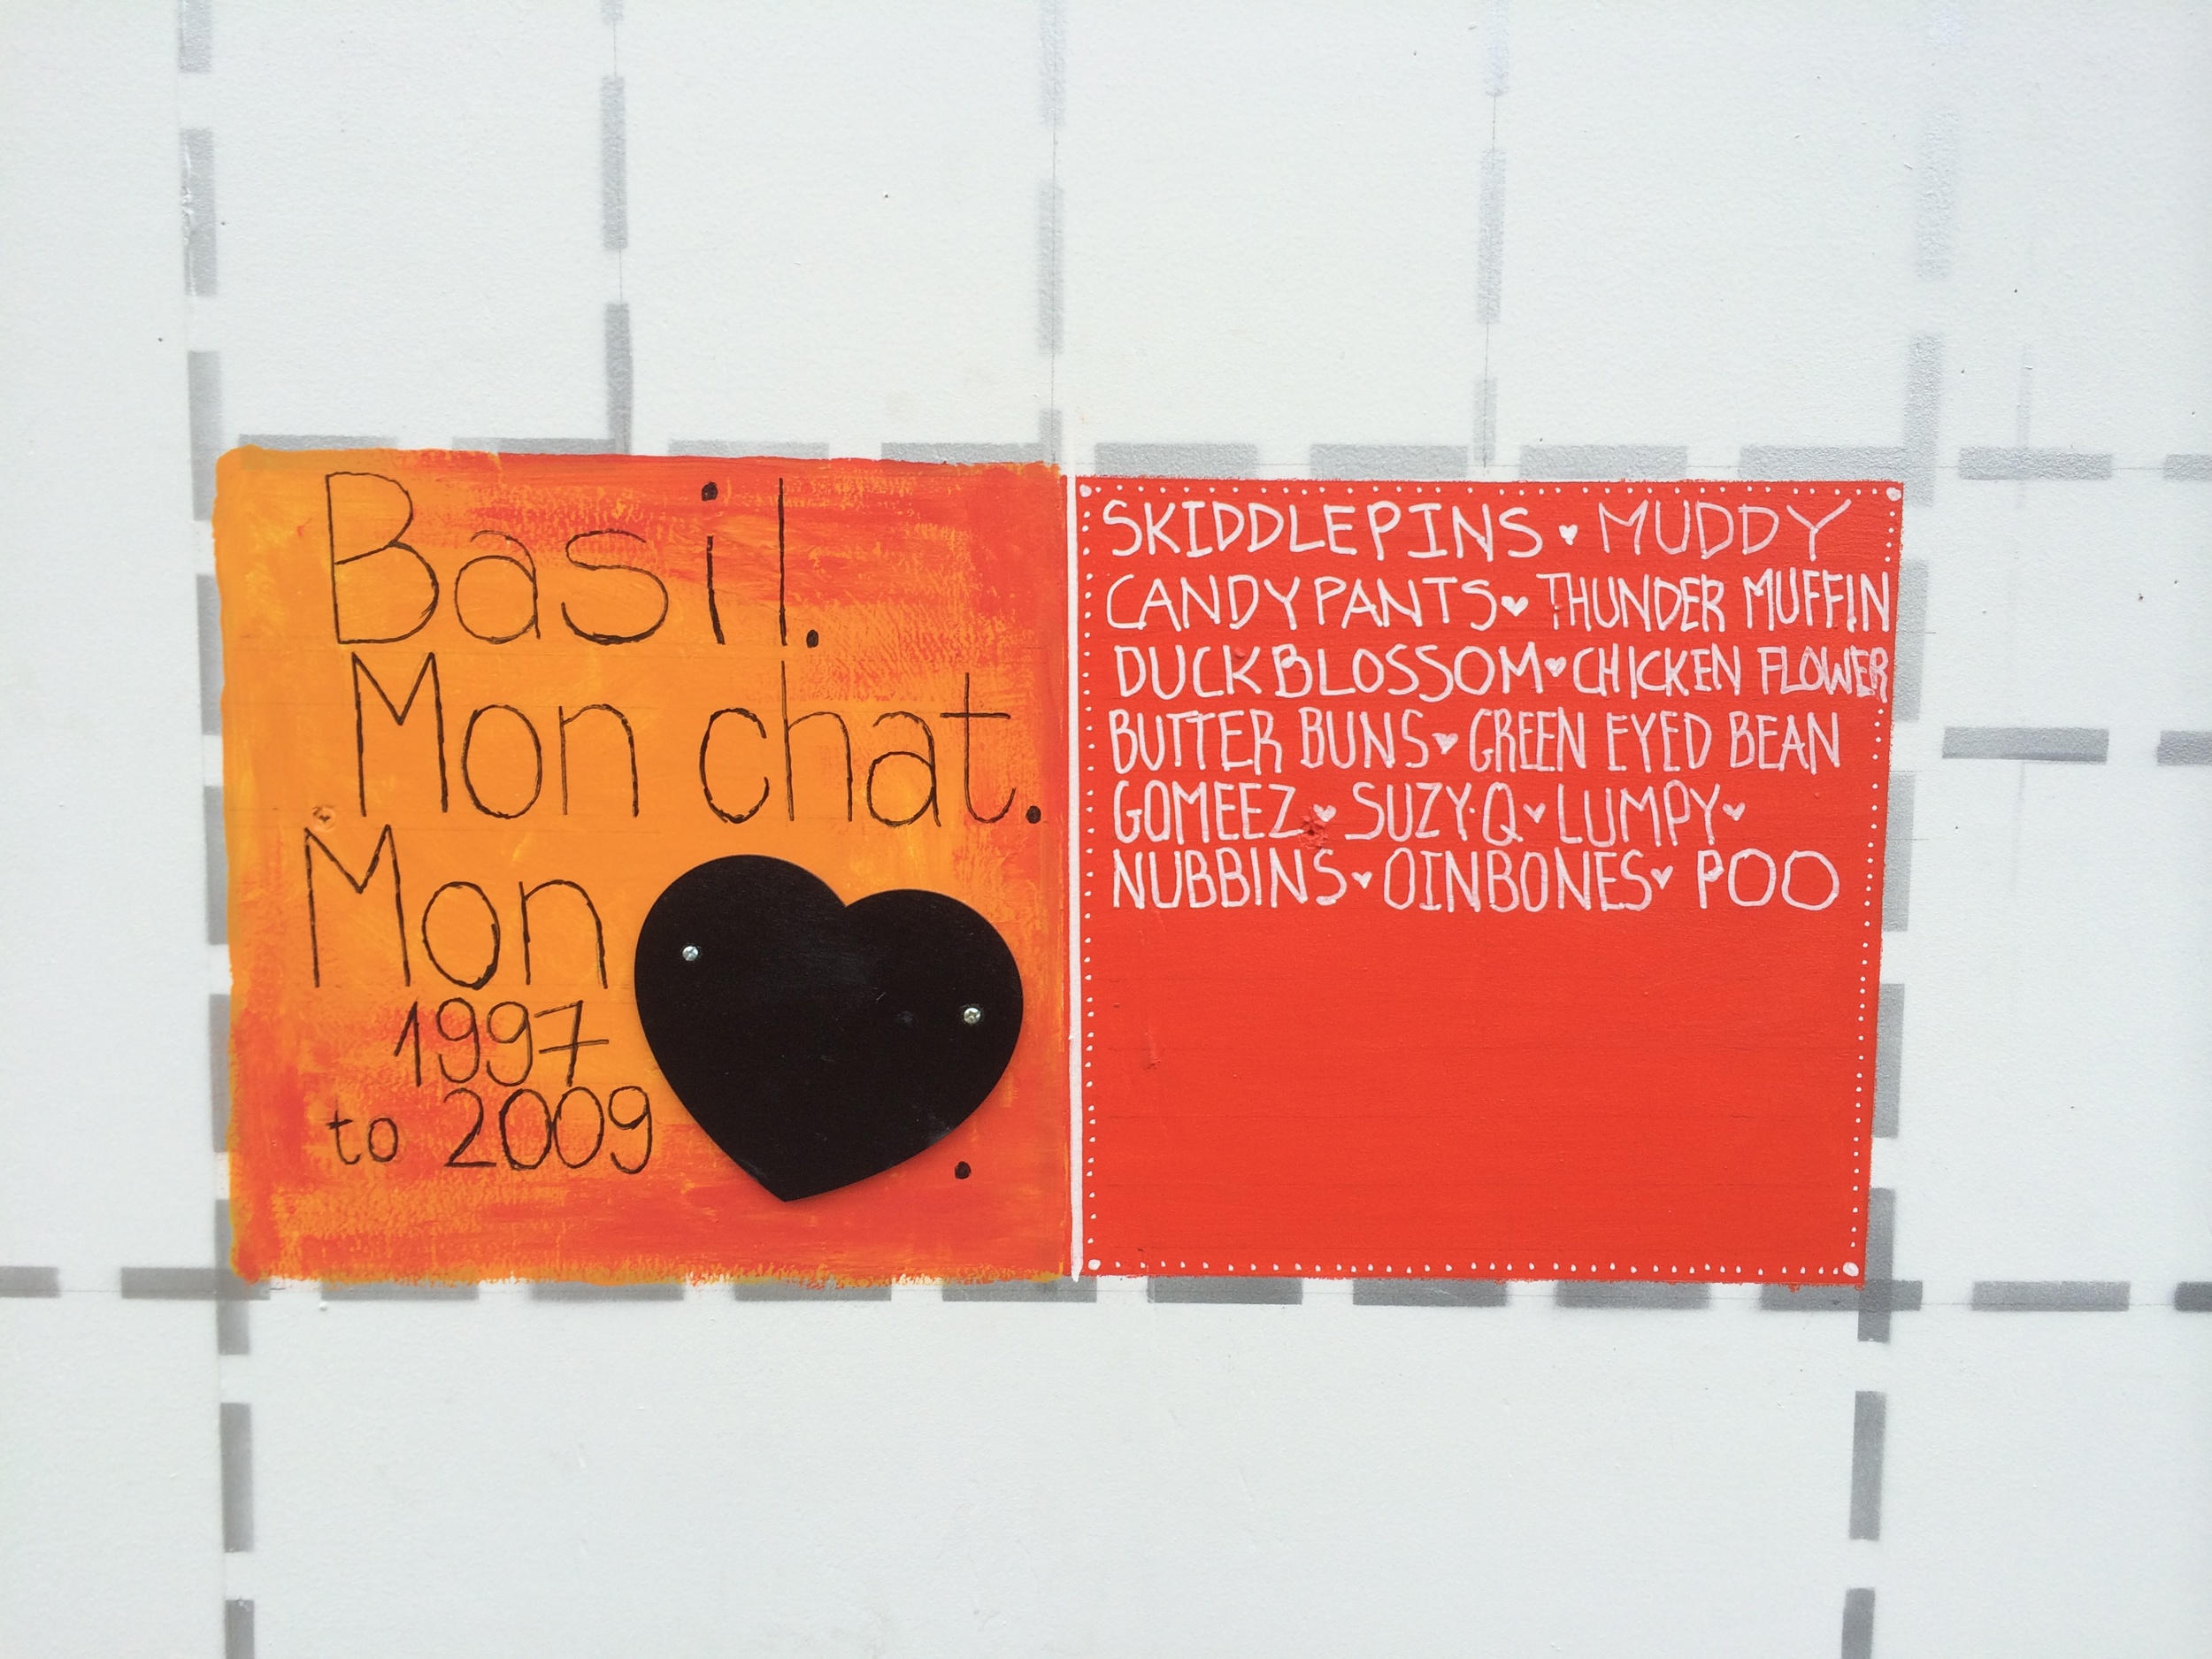 Basil.
Mon chat.
Mon
1997
to 2009
SKIDDLEPINS ♥ MUDDY
CANDYPANTS ♥ THUNDER MUFFIN
DUCKBLOSSOM ♥ CHICKEN FLOWER
BUTTER BUNS ♥ GREEN EYED BEAN
GOMEEZ ♥ SUZY·Q ♥ LUMPY ♥
NUBBINS ♥ OINBONES ♥ POO